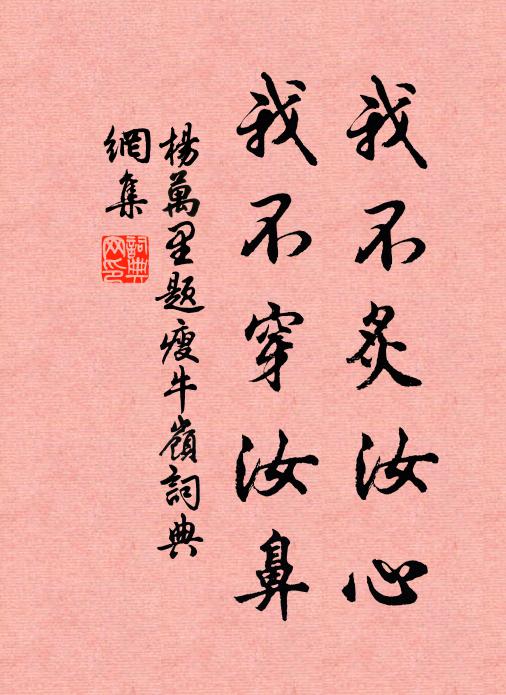 我不炙汝心
我不穿汝鼻
楊萬里題瘦牛嶺詞典
網集
詞典
網印